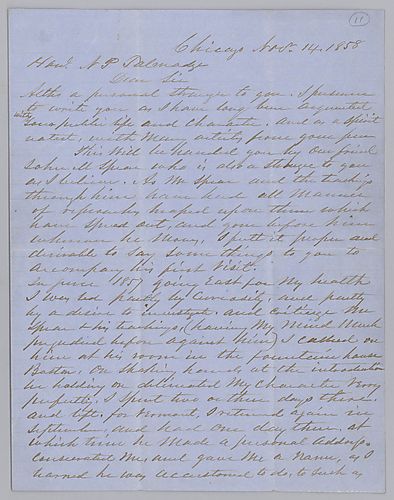 11
Chicago Nov. 14. 1858
Hon. N P Talmadge
Dear Sir
Altho a personal stranger to you. I presume
to write you as I have long been acquainted
with your public life and character. and as a Spirit
ualist, with many articles from your pen
This will be handed you by our friend
John M Spear who is also a stranger to you
as I believe. As Mr Spear and the teachings
through him have had all manner
of reproaches heaped upon them which
have spread out, and gone before him
wherever he moves, I felt it proper and
desirable to say some things to you to
accompany his first visit.
In June 1857 going East for my health
I was led partly by curiosity, and partly
by a desire to investigate. and criticise Mr
Spear & his teachings, (having my mind much
prejudiced before against him) I called on
him at his room in the fountain house
Boston. On shaking hands at the introduction
he holding on delineated my character very
perfectly, I spent two or three days there
and left for Vermont, I returned again in
September and had one day there, at
which time he made a personal address.
consecrated me, and gave me a name, as I
learned he was accustomed to do, to such as